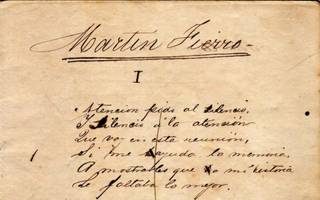 Martin Fierro
I
Atencion pido al silencio,
Y silencio á la atencion
Que voy en esta reunion,
1 Si me ayuda la memoria,
A mostrarles que á mi historia
Le faltaba lo mejor.